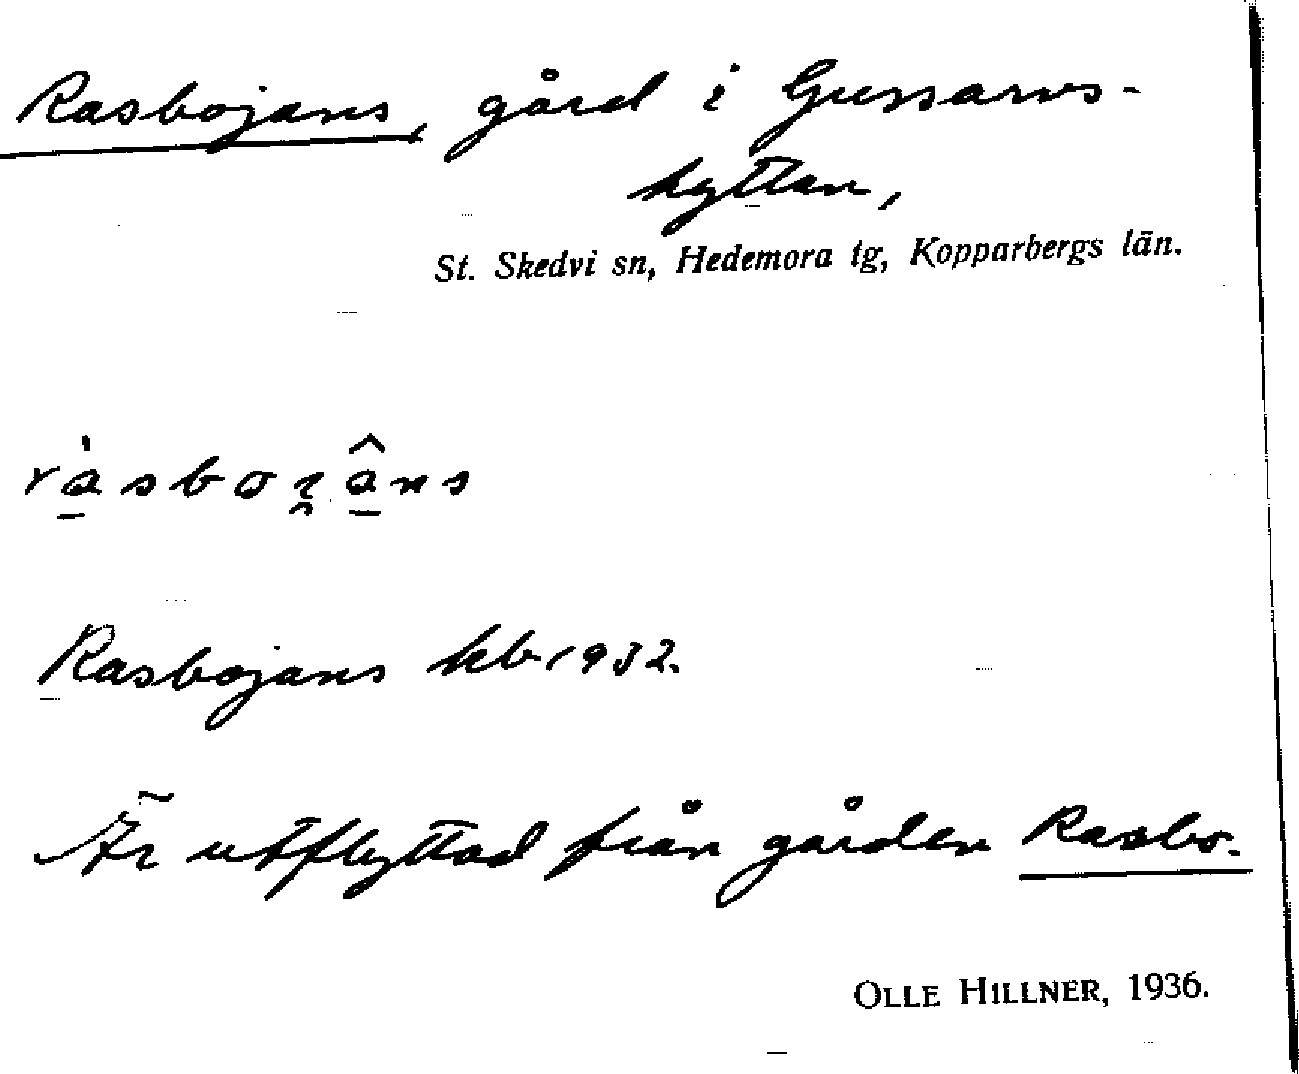 Rasbojans, gård i Gussarvs-
hyttan,
St. Skedvi sn, Hedemora tg, Kopparbergs län.
Rasbojans kb 1932.
Är utflyttad från gården Rasbo.
OLLE HILLNER, 1936.